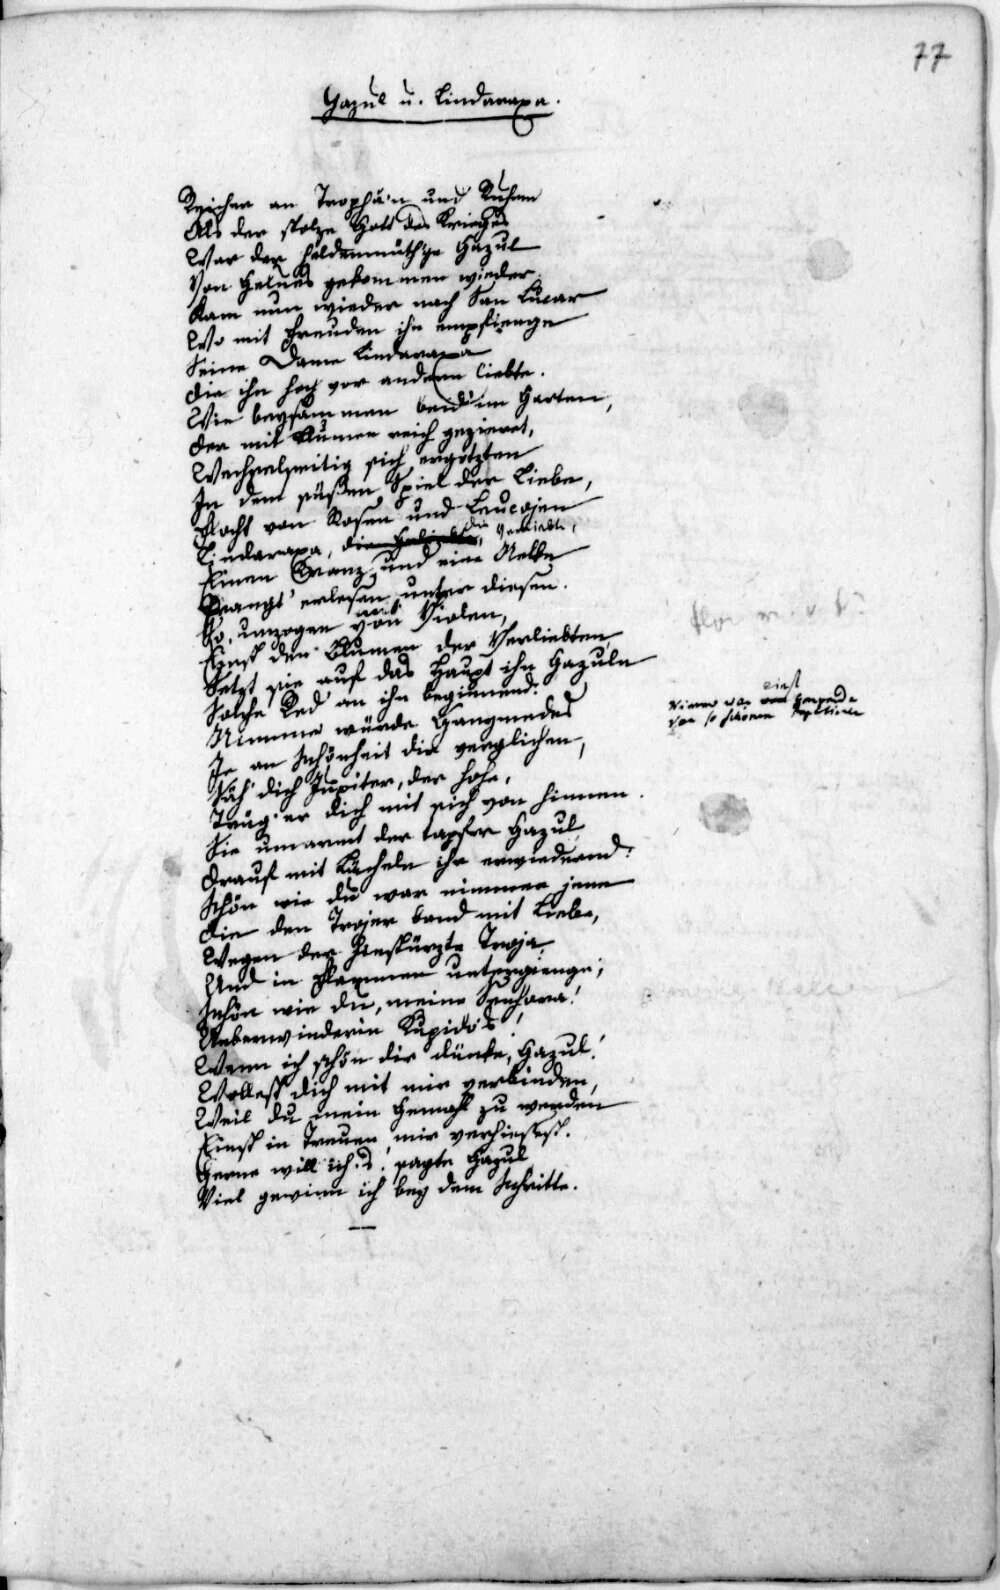 77
Gazul u. Lindaraxa.
Reicher an Trophä'n und Ruhm
Als der stolze Gott des Krieges
War der heldenmüth'ge Gazul
Von Gelues gekommen wieder.
Kam nun wieder nach San Lucar
Wo mit Freuden ihn empfienge
Seine Dame Lindaraxa
Die ihn hoch vor andern liebte.
Wie beysammen beid' im Garten,
Der mit Blumen reich gezieret,
Wechselseitig sich ergötzten
In dem süßen Spiel der Liebe,
Flocht von Rosen und Leucojen
Lindaraxa, die Geliebte, die Verliebte,
Einen Cranz, und eine Nelke
Prangt' erlesen unter diesen.
So, umzogen von mit Violen,
Einst den Blumen der Verliebten,
Setzt sie auf das Haupt ihn Gazuln
Solche Red' an ihn beginnend:
Nimmer würde Ganymedes
Je an Schönheit dir verglichen,
Säh' dich Jupiter, der hohe,
Trüg' er dich mit sich von hinnen.
Sie umarmt der tapfre Gazul
Drauf mit Lächeln ihr erwiedernd:
Schön wie du war nimmer jene
Die den Trojer band mit Liebe,
Wegen der hinstürzte Troja
Und in Flammen untergienge;
Schön wie du, meine Senhora!
Ueberwinderin Kupido's!
Wenn ich schön dir dünke, Gazul!
Wollest dich mit mir verbinden,
Weil du mein Gemahl zu werden
Einst in Treuen mir verhießest.
Gerne will ich's! sagte Gazul
Viel gewinn ich bey dem Schritte.
einst
so schönen